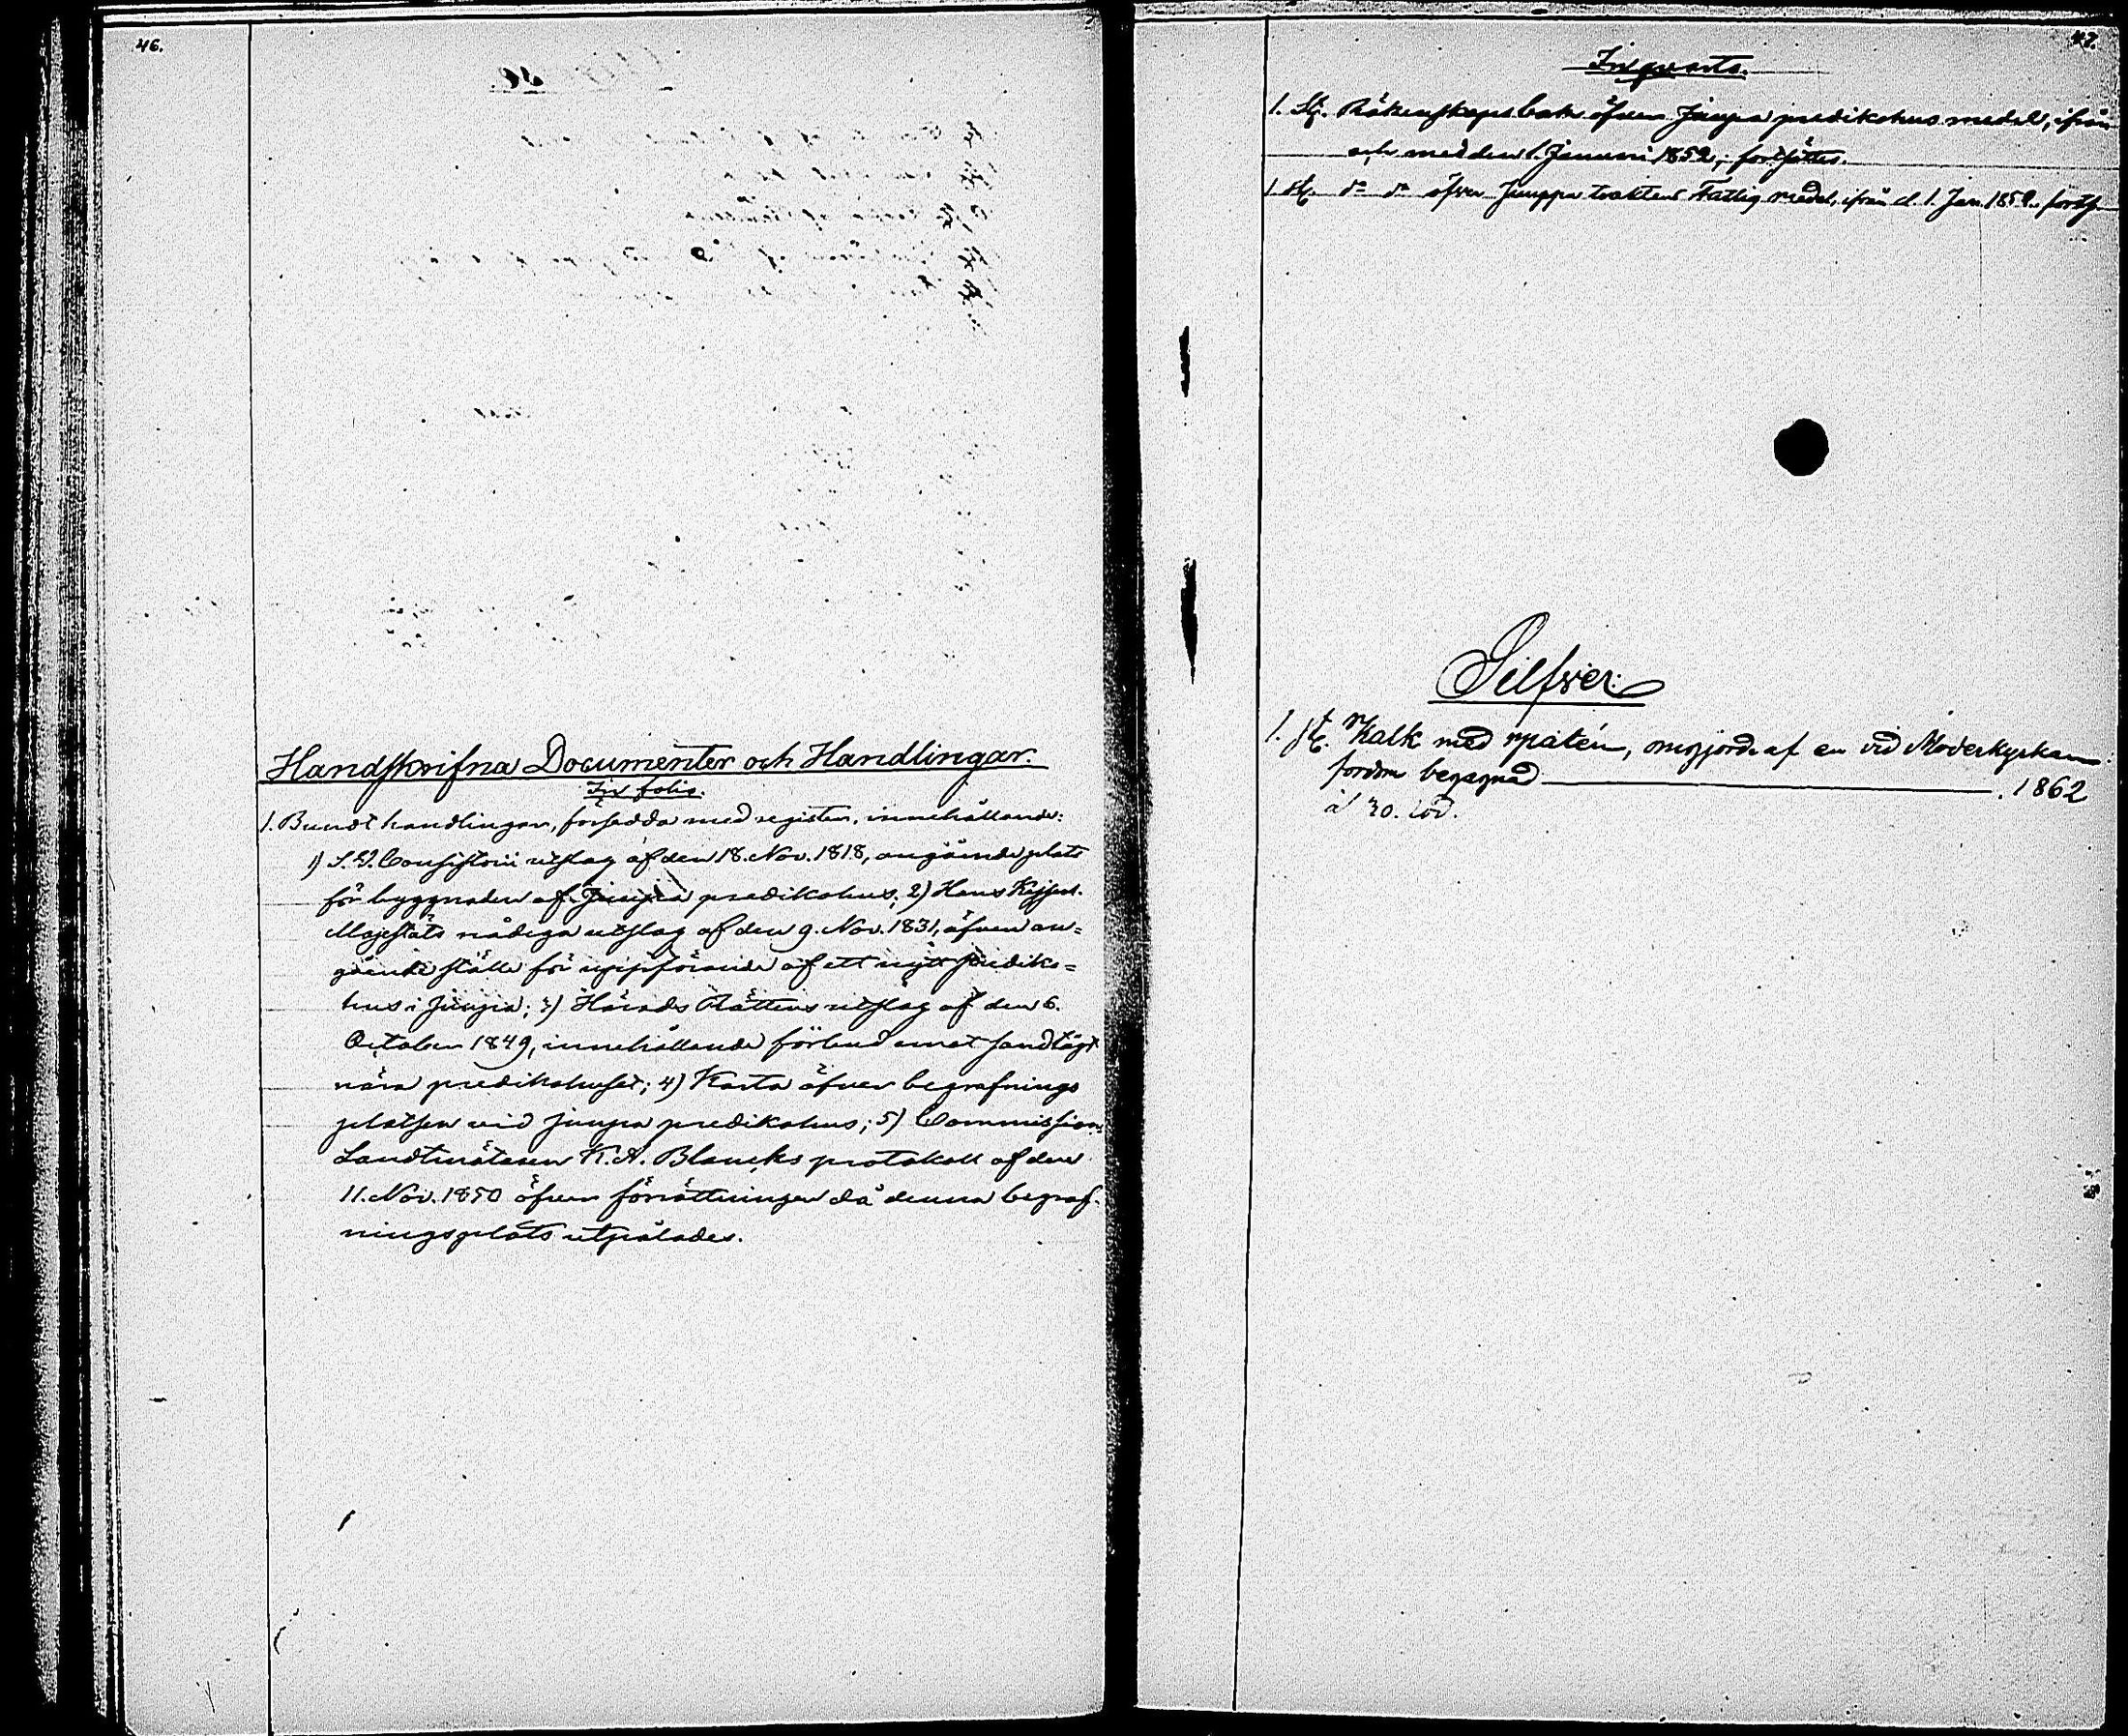 46.
Handskrifna Documenter och Handlingar.
In folio.
1. Bundt handlingar, försedda med register, innehållande:
1) S. V. Consistorii utslag af den 18. Nov. 1818, angående plats
för byggnaden af Jumpa predikohus; 2) Hans Kejserl.
Majestäts nådiga utslag af den 9. Nov. 1831, äfven an=
gående ställe för uppförande af ett nytt prediko=
hus i Jumpa; 3) Härads Rättens utslag af den 6.
October 1849, innehållande förbud emot sandtägt
nära predikohuset; 4) Karta öfver begrafnings
platsen vid Jumpa predikohus; 5) Commissions
Landtmätaren K. A. Blancks protokoll af den
11. Nov. 1850 öfver förrättningen då denna begraf-
ningsplats utpålades.
47.
In quarto.
1. St. Räkenskapsbok öfver Jumpa predikohus medel, ifrån
och med den 1. Januari 1852; fortsättes.
1 st. do do öfver Jumppa traktens Fattig medel, ifrån d. 1. Jan. 1852. forts.
Silfver:
1. st. Kalk med patén, omgjord af en vid Moderkyrkan
fordom begagnad . 1862
à 30. lod.